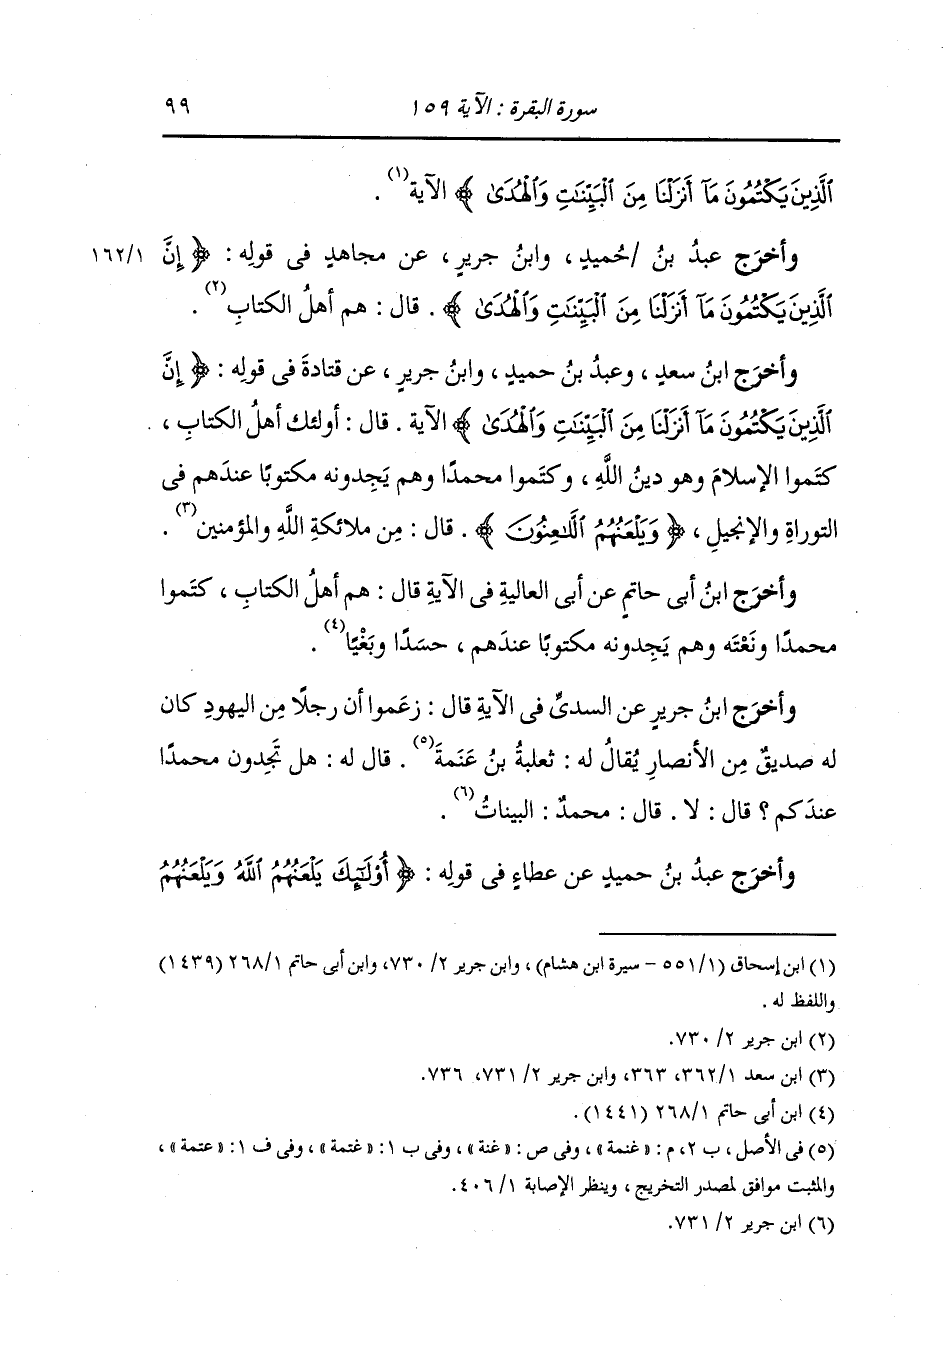 سورة البقرة : الآية ١٥٩ ٩٩
ٱلَّذِينَ يَكْتُمُونَ مَآ أَنزَلْنَا مِنَ ٱلْبَيِّنَٰتِ وَٱلْهُدَىٰ ﴾ الآية(١) .
وأخرَج عبدُ بنُ /حُميدٍ ، وابنُ جريرٍ ، عن مجاهدٍ فى قولِه : ﴿ إِنَّ ١٦٢/١
ٱلَّذِينَ يَكْتُمُونَ مَآ أَنزَلْنَا مِنَ ٱلْبَيِّنَٰتِ وَٱلْهُدَىٰ ﴾ . قال : هم أهلُ الكتابِ(٢) .
وأخرَج ابنُ سعدٍ ، وعبدُ بنُ حميدٍ ، وابنُ جريرٍ ، عن قتادةَ فى قولِه : ﴿ إِنَّ
ٱلَّذِينَ يَكْتُمُونَ مَآ أَنزَلْنَا مِنَ ٱلْبَيِّنَٰتِ وَٱلْهُدَىٰ ﴾ الآية . قال : أولئك أهلُ الكتابِ ،
كتَموا الإسلامَ وهو دينُ اللَّهِ ، وكتَموا محمدًا وهم يَجِدونه مكتوبًا عندَهم فى
التوراةِ والإنجيلِ ، ﴿ وَيَلْعَنُهُمُ ٱللَّٰعِنُونَ ﴾ . قال : مِن ملائكةِ اللَّهِ والمؤمنين(٣) .
وأخرَج ابنُ أبى حاتمٍ عن أبى العاليةِ فى الآيةِ قال : هم أهلُ الكتابِ ، كتَموا
محمدًا ونَعْتَه وهم يَجِدونه مكتوبًا عندَهم ، حسَدًا وبَغْيًا(٤) .
وأخرَج ابنُ جريرٍ عن السدىِّ فى الآيةِ قال : زعَموا أن رجلًا مِن اليهودِ كان
له صديقٌ مِن الأنصارِ يُقالُ له : ثعلبةُ بنُ عَنَمةَ(٥) . قال له : هل تَجِدون محمدًا
عندَكم ؟ قال : لا . قال : محمدٌ : البيناتُ(٦) .
وأخرَج عبدُ بنُ حميدٍ عن عطاءٍ فى قولِه : ﴿ أُو۟لَٰٓئِكَ يَلْعَنُهُمُ ٱللَّهُ وَيَلْعَنُهُمُ
(١) ابن إسحاق (٥٥١/١ - سيرة ابن هشام) ، وابن جرير ٢/ ٧٣٠، وابن أبى حاتم ٢٦٨/١ (١٤٣٩)
واللفظ له .
(٢) ابن جرير ٢/ ٧٣٠.
(٣) ابن سعد ٣٦٢/١، ٣٦٣، وابن جرير ٢/ ٧٣١، ٧٣٦.
(٤) ابن أبى حاتم ٢٦٨/١ (١٤٤١) .
(٥) فى الأصل ، ب ٢، م : « غنمة » ، وفى ص : « غنة » ، وفى ب ١: « غتمة » ، وفى ف ١: « عتمة » ،
والمثبت موافق لمصدر التخريج ، وينظر الإصابة ١/ ٤٠٦.
(٦) ابن جرير ٢/ ٧٣١.